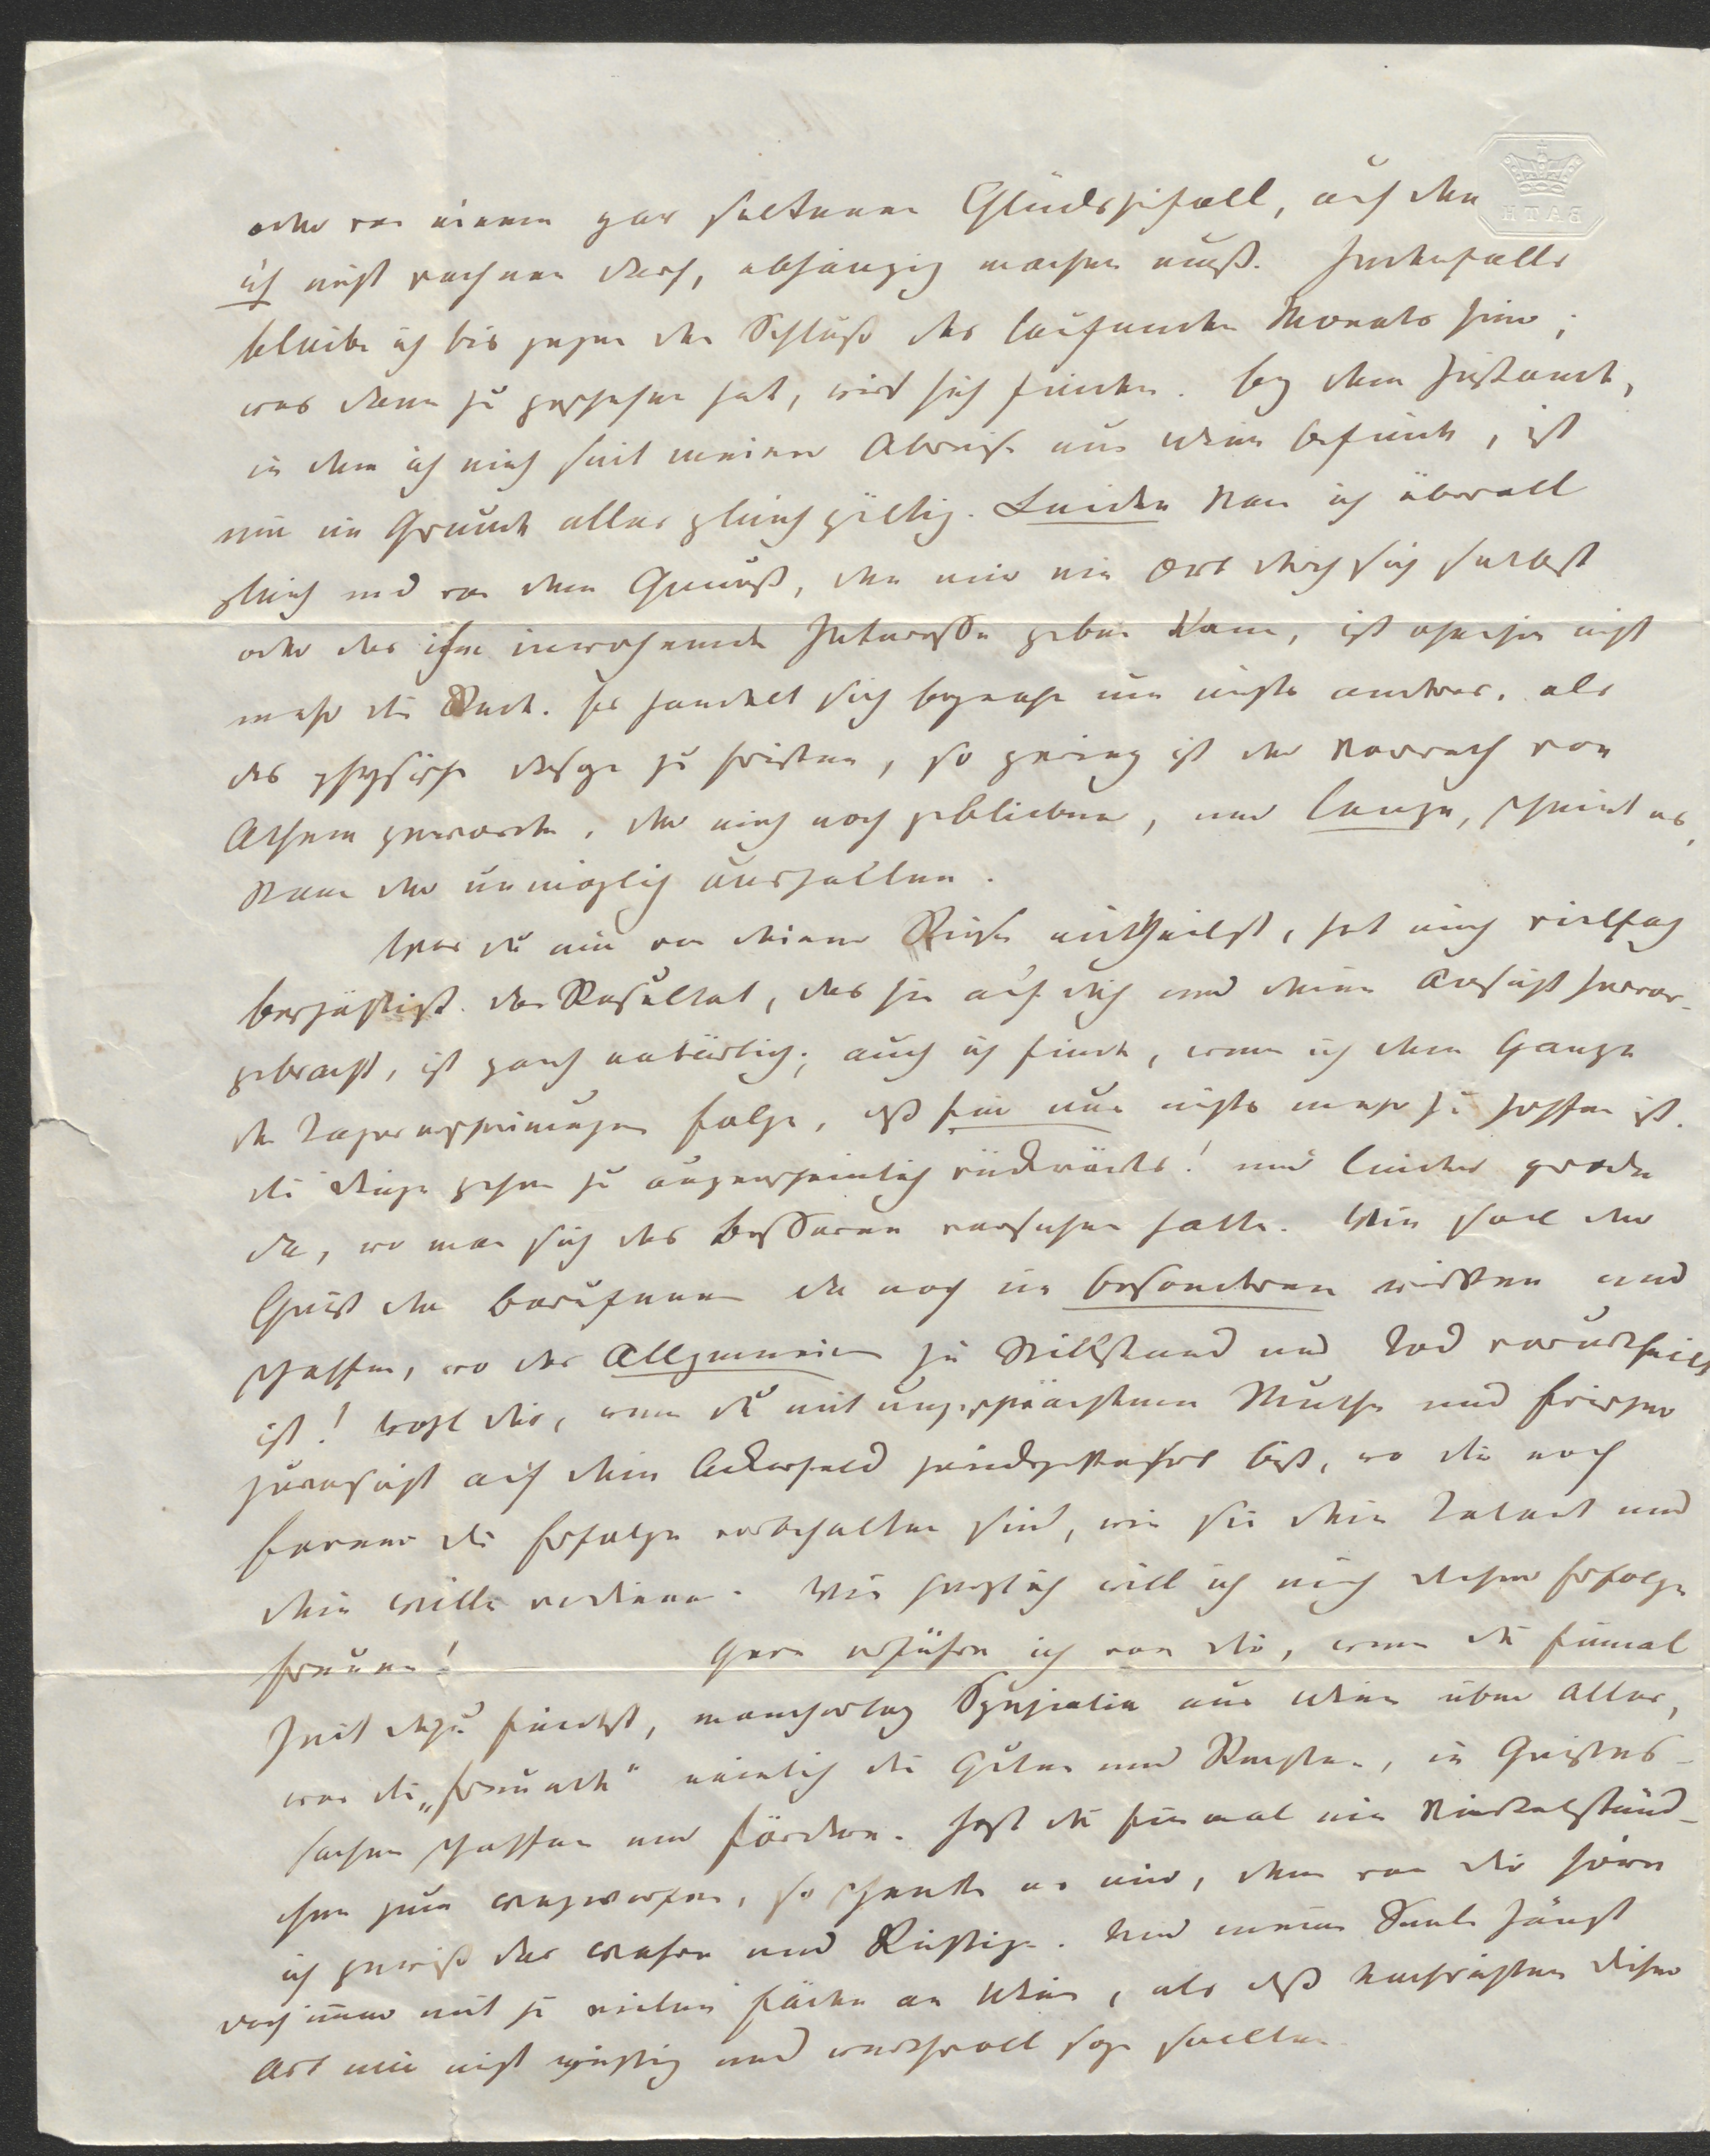 oder von einem gar seltenen Glückszufall, auf den
ich nicht rechnen darf, abhängig machen muß. Jedenfalls
bleibe ich bis gegen den Schluß des laufenden Monats hier;
was dann zu geschehen hat, wird sich finden. Bey dem Zustande,
in dem ich mich seit meiner Abreise aus Wien befinde, ist
mir im Grunde alles gleichgültig. Leiden kann ich überall
gleich und von dem Genuß, den mir ein Ort durch sich selbst
oder das ihm inwohnende Interesse geben kann, ist ohnehin nicht
mehr die Rede. Es handelt sich beynahe um nichts anderes, als
das physische Daseyn zu fristen, so gering ist der Vorrath von
Athem geworden, der mich noch geblieben, und lange, scheint es,
kann der unmöglich aushalten.
Was du mir von deiner Reise mittheilst, hat mich vielfach
beschäftigt. Das Resultat, das sie auf dich und deine Ansicht hervor-
gebracht, ist ganz natürlich; auch ich finde, wenn ich dem Gange
der Tageserscheinungen folge, daß für nun nichts mehr zu hoffen ist.
Die Dinge gehen zu augenscheinlich rückwärts! und leider gerade
da, wo man sich des Besseren versehen hatte. Wie soll der
Geist der Berufenen da noch im Besonderen wirken und
schaffen, wo das Allgemeine zu Stillstand und Tod verurtheilt
ist! Wohl dir, wenn du mit ungeschwächtem Muthe und frischer
Zuversicht auf dein Ackerfeld zurückgekehrt bist, wo dir noch
ferner die Erfolge vorbehalten sind, wie sie dein Talent und
dein Wille verdienen. Wie herzlich will ich mich dieser Erfolge
freuen! Gern erführe ich von dir, wenn du einmal
Zeit dazu findest, mancherley Spezielle aus Wien über Alles,
was die „Freunde" nämlich die Guten und Rechten, in Geistes-
sachen schaffen und fördern. Hast du einmal ein Viertelstünd-
chen zum wegwerfen, so schenke es mir, denn von dir höre
ich gewiß das Wahre und Richtige. Und meine Seele hängt
noch immer mit zu vielen Fäden an Wien, als daß Nachrichten dieser
Art mir nicht wichtig und werthvoll seyn sollten.
BATH